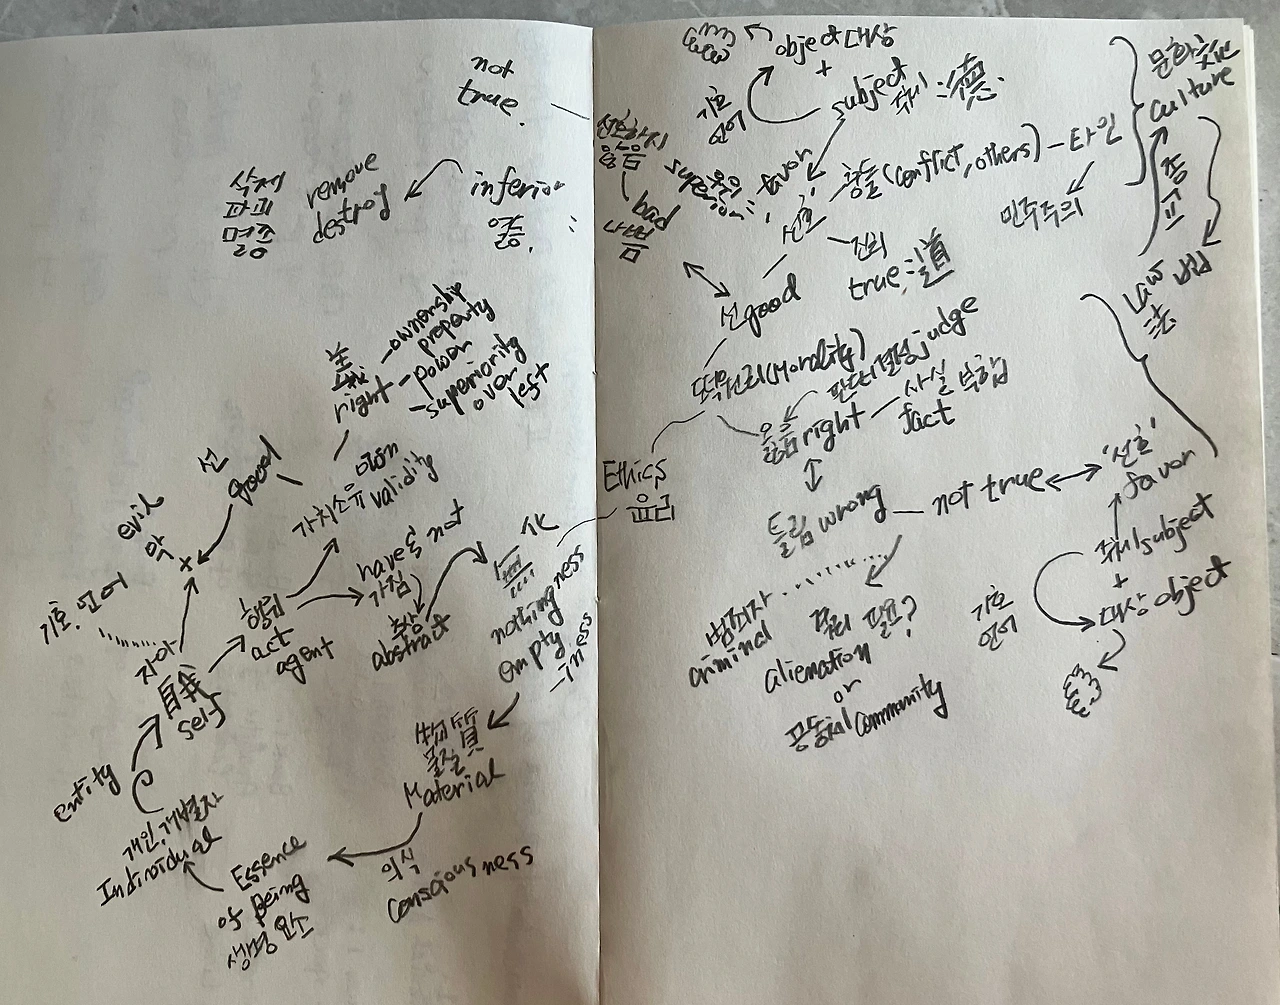 not
true.
삭제
파괴
멸종
remove
destroy
inferior
열등.
義
right
- ownership
property
- power
- superiority
over
left
선
good
evil
악
+
가치소유 own
validity
기호. 언어
자아
自我
self
행위
act
agent
have & not
가짐
추상
abstract
無
nothingness
empty
-iness
entity
개인, 개별자
Individual
Essence
of Being
생명 요소
物質
물질
Material
의식
consciousness
object 대상
+
subject 주체 : 德.
기호
언어
선호하지
않음
bad
나쁨
우위
superior
favor
선호
충돌 (conflict, others) - 타인
민주주의
진리
true : 道
선 good
문화
culture
종교
Law 법
法
Ethics
윤리
(Morality)
판단 결정 judge
옳음 right - 사실 부합
fact
틀림 wrong - not true
'선호'
favor
주체 subject
+
대상 object
기호
언어
범죄자
criminal
격리 필요?
alienation
or
공동체 community